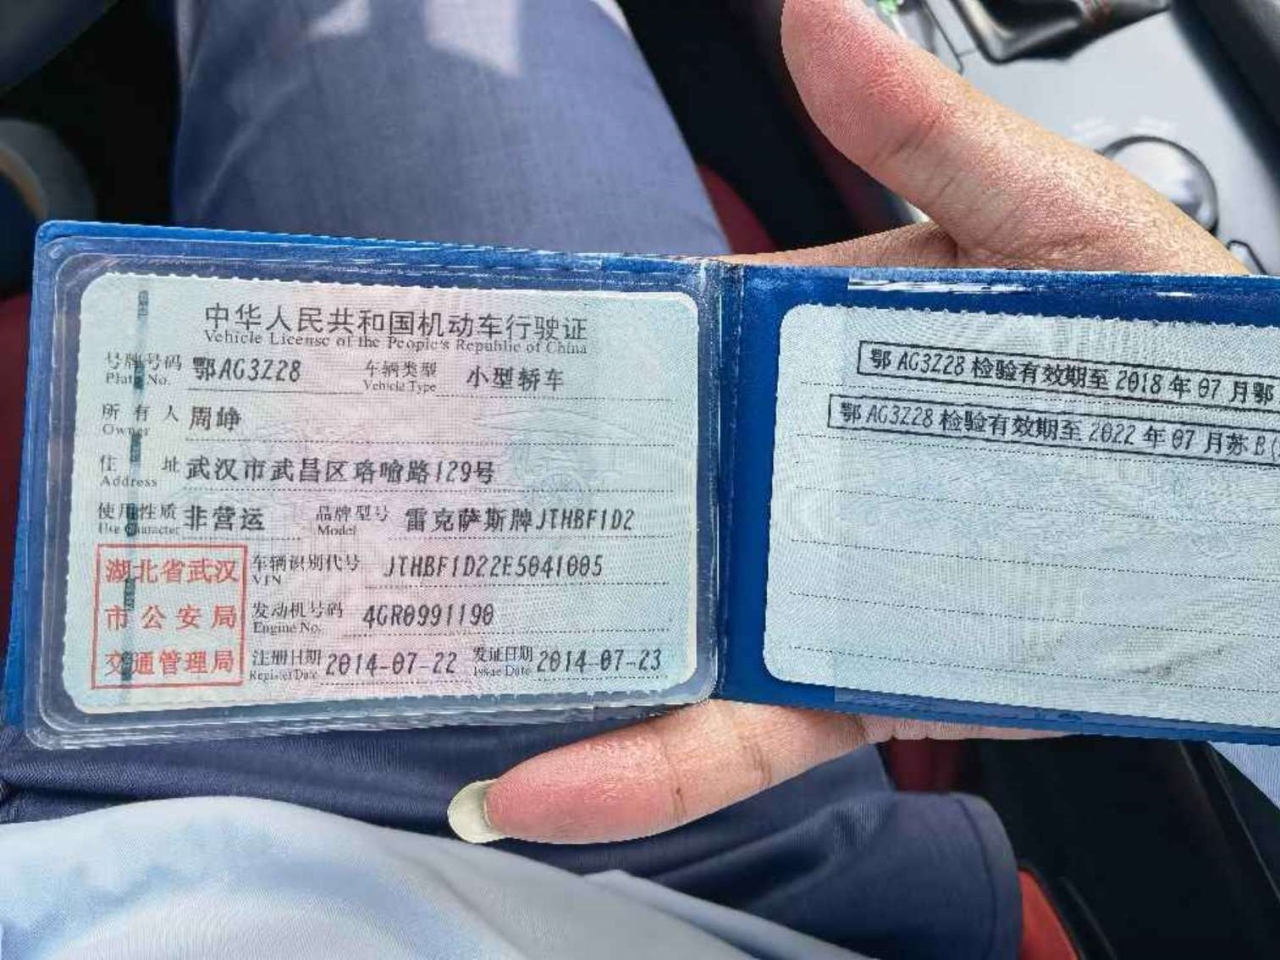 中华人民共和国机动车行驶证
Vehicle License of the People's Republic of China
号牌号码 鄂AG3Z28 车辆类型 小型轿车
Plate No. Vehicle Type
所有人 周峥
Owner
住址 武汉市武昌区珞喻路129号
Address
使用性质 非营运 品牌型号 雷克萨斯牌JTHBF1D2
Use Character Model
湖北省武汉
市公安局
交通管理局
车辆识别代号 JTHBF1D22E5041005
VIN
发动机号码 4GR0991190
Engine No.
注册日期 2014-07-22 发证日期 2014-07-23
Register Date Issue Date
鄂AG3Z28检验有效期至2018年07月鄂
鄂AG3Z28检验有效期至2022年07月苏B(